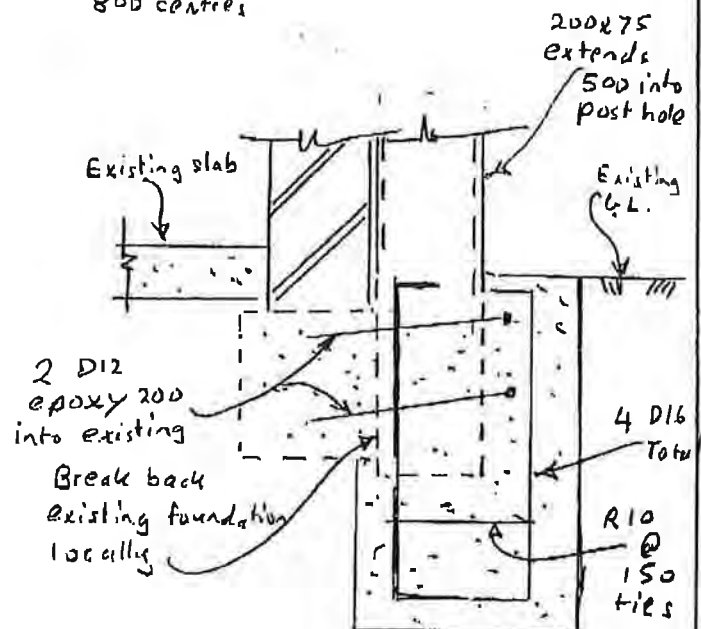 800 centres
200x75
extends
500 into
post hole
Existing slab
Existing
G.L.
2 D12
epoxy 200
into existing
Break back
existing foundation
locally
4 D16
Total
R10
@
150
ties